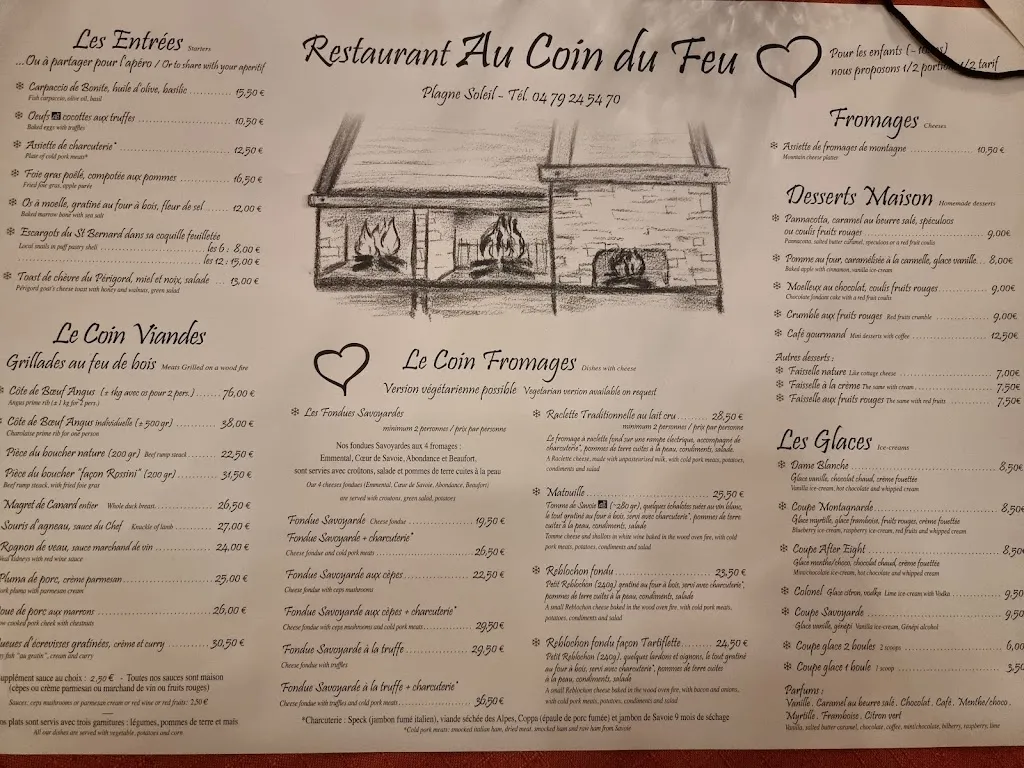 Les Entrées Starters
...Ou à partager pour l'apéro / Or to share with your aperitif
Carpaccio de Bonite, huile d'olive, basilic 15,50 €
Fish carpaccio, olive oil, basil
Oeufs cocottes aux truffes 10,50 €
Baked eggs with truffles
Assiette de charcuterie* 12,50 €
Plate of cold pork meats*
Foie gras poêlé, compotée aux pommes 16,50 €
Fried foie gras, apple purée
Os à moelle, gratiné au four à bois, fleur de sel 12,00 €
Baked marrow bone with sea salt
Escargots du St Bernard dans sa coquille feuilletée
Local snails in puff pastry shell
les 6 : 8,00 €
les 12 : 15,00 €
Toast de chèvre du Périgord, miel et noix, salade 13,00 €
Périgord goat's cheese toast with honey and walnuts, green salad
Le Coin Viandes
Grillades au feu de bois Meats Grilled on a wood fire
Côte de Bœuf Angus (± 1kg avec os pour 2 pers.) 76,00 €
Angus prime rib (± 1 kg for 2 pers.)
Côte de Bœuf Angus individuelle (± 500 gr) 38,00 €
Charolaise prime rib for one person
Pièce du boucher nature (200 gr) Beef rump steack 22,50 €
Pièce du boucher "façon Rossini" (200 gr) 31,50 €
Beef rump steack, with fried foie gras
Magret de Canard entier Whole duck breast 26,50 €
Souris d'agneau, sauce du Chef Knuckle of lamb 27,00 €
Rognon de veau, sauce marchand de vin 24,00 €
kidneys with red wine sauce
Pluma de porc, crème parmesan 25,00 €
pluma with parmesan cream
oue de porc aux marrons 26,00 €
cooked pork cheek with chestnuts
ueues d'écrevisses gratinées, crème et curry 30,50 €
fish "au gratin", cream and curry
upplément sauce au choix : 2,50 € - Toutes nos sauces sont maison
(cèpes ou crème parmesan ou marchand de vin ou fruits rouges)
Sauces, ceps mushrooms or parmesan cream or red wine or red fruits: 2.50 €
os plats sont servis avec trois garnitures : légumes, pommes de terre et maïs
All our dishes are served with vegetable, potatoes and corn.
Restaurant Au Coin du Feu
Plagne Soleil - Tél. 04 79 24 54 70
Le Coin Fromages Dishes with cheese
Version végétarienne possible Vegetarian version available on request
Les Fondues Savoyardes
minimum 2 personnes / prix par personne
Nos fondues Savoyardes aux 4 fromages :
Emmental, Cœur de Savoie, Abondance et Beaufort,
sont servies avec croûtons, salade et pommes de terre cuites à la peau
Our 4 cheeses fondues (Emmental, Cœur de Savoie, Abondance, Beaufort)
are served with croutons, green salad, potatoes
Fondue Savoyarde Cheese fondue 19,50 €
Fondue Savoyarde + charcuterie*
Cheese fondue and cold pork meats 26,50 €
Fondue Savoyarde aux cèpes 22,50 €
Cheese fondue with ceps mushrooms
Fondue Savoyarde aux cèpes + charcuterie*
Cheese fondue with ceps mushrooms and cold pork meats 29,50 €
Fondue Savoyarde à la truffe 29,50 €
Cheese fondue with truffles
Fondue Savoyarde à la truffe + charcuterie*
Cheese fondue with truffles and cold pork meats 36,50 €
Raclette Traditionnelle au lait cru 28,50 €
minimum 2 personnes / prix par personne
Le fromage à raclette fond sur une rampe électrique, accompagné de
charcuterie*, pommes de terre cuites à la peau, condiments, salade
A Raclette cheese, made with unpasteurised milk, with cold pork meats, potatoes,
condiments and salad
Matouille 25,50 €
Tomme de Savoie (~280 gr), quelques échalotes suées au vin blanc,
le tout gratiné au four à bois, servi avec charcuterie*, pommes de terre
cuites à la peau, condiments, salade
Tomme cheese and shallots in white wine baked in the wood oven fire, with cold
pork meats, potatoes, condiments and salad
Reblochon fondu 23,50 €
Petit Reblochon (240g) gratiné au four à bois, servi avec charcuterie*,
pommes de terre cuites à la peau, condiments, salade
A small Reblochon cheese baked in the wood oven fire, with cold pork meats,
potatoes, condiments and salad
Reblochon fondu façon Tartiflette 24,50 €
Petit Reblochon (240g), quelques lardons et oignons, le tout gratiné
au four à bois, servi avec charcuterie*, pommes de terre cuites
à la peau, condiments, salade
A small Reblochon cheese baked in the wood oven fire, with bacon and onions,
with cold pork meats, potatoes, condiments and salad
*Charcuterie : Speck (jambon fumé italien), viande séchée des Alpes, Coppa (épaule de porc fumée) et jambon de Savoie 9 mois de séchage
*Cold pork meats: smocked italian ham, dried meat, smocked ham and raw ham from Savoie
Pour les enfants (-
nous proposons 1/2 portion 1/2 tarif
Fromages Cheeses
Assiette de fromages de montagne 10,50 €
Mountain cheese platter
Desserts Maison Homemade desserts
Pannacotta, caramel au beurre salé, spéculoos
ou coulis fruits rouges 9,00€
Pannacotta, salted butter caramel, speculoos or a red fruit coulis
Pomme au four, caramélisée à la cannelle, glace vanille... 8,00€
Baked apple with cinnamon, vanilla ice-cream
Moelleux au chocolat, coulis fruits rouges 9,00€
Chocolate fondant cake with a red fruit coulis
Crumble aux fruits rouges Red fruits crumble 9,00€
Café gourmand Mini desserts with coffee 12,50€
Autres desserts :
Faisselle nature Like cottage cheese 7,00€
Faisselle à la crème The same with cream 7,50€
Faisselle aux fruits rouges The same with red fruits 7,50€
Les Glaces Ice-creams
Dame Blanche 8,50€
Glace vanille, chocolat chaud, crème fouettée
Vanilla ice-cream, hot chocolate and whipped cream
Coupe Montagnarde 8,50€
Glace myrtille, glace framboise, fruits rouges, crème fouettée
Blueberry ice-cream, raspberry ice-cream, red fruits and whipped cream
Coupe After Eight 8,50€
Glace menthe/choco, chocolat chaud, crème fouettée
Mint/chocolate ice-cream, hot chocolate and whipped cream
Colonel Glace citron, vodka Lime ice-cream with Vodka 9,50
Coupe Savoyarde 9,50
Glace vanille, génépi Vanilla ice-cream, Génépi alcohol
Coupe glace 2 boules 2 scoops 6,00
Coupe glace 1 boule 1 scoop 3,50
Parfums :
Vanille . Caramel au beurre salé . Chocolat . Café . Menthe/choco .
Myrtille . Framboise . Citron vert
Vanilla, salted butter caramel, chocolate, coffee, mint/chocolate, bilberry, raspberry, lime